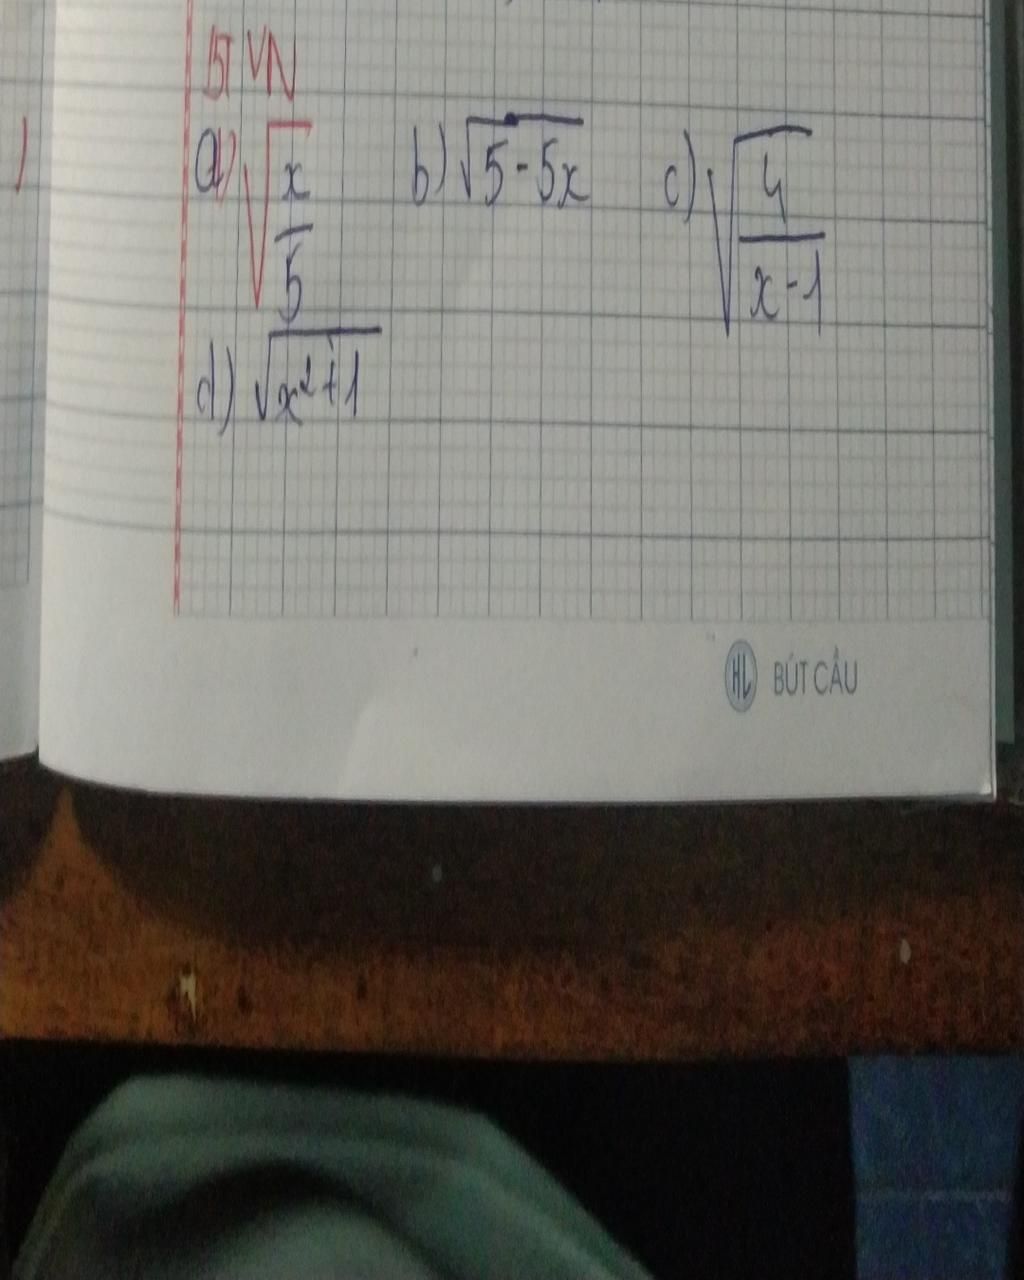 BTVN
a) √(x/5) b) √(5-5x) c) √(4/(x-1))
d) √(x²+1)
HL BÚT CẦU